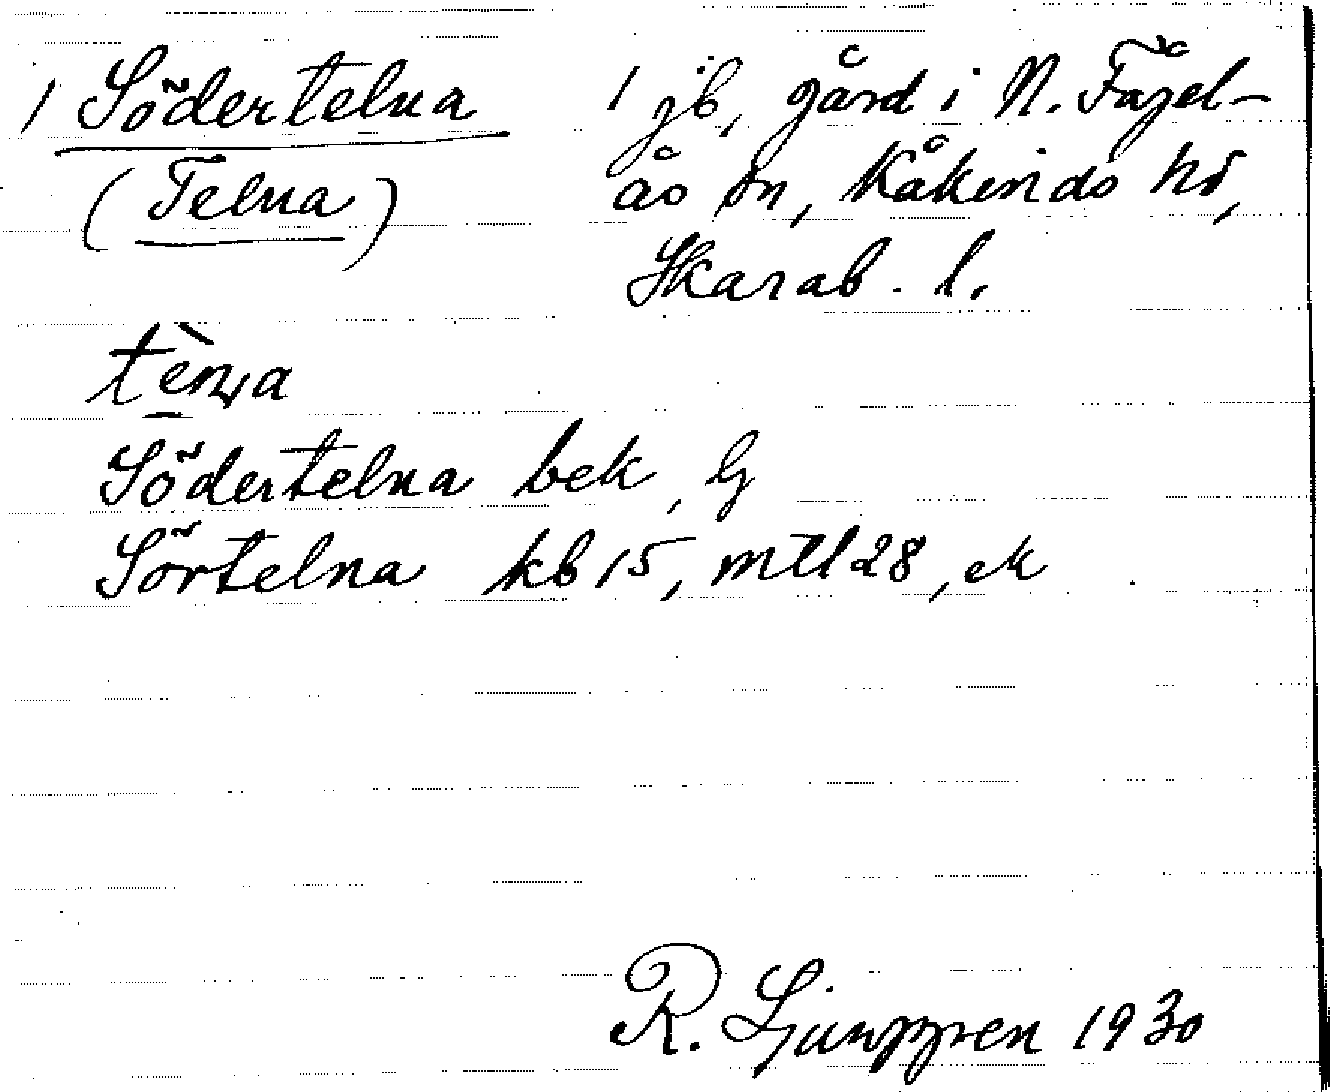 1 Södertelna 1 jb, gård i N. Fågel-
(Telna) ås sn, Kåkinds hd,
Skarab. l.
tèṉa
Södertelna bek, G
Sörtelna kb 15, mtl 28, ek
R. Ljunggren 1930